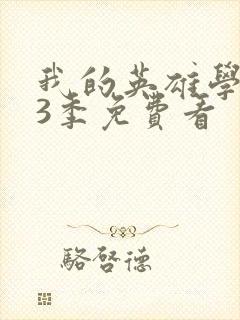 我的英雄學
3季免費看
駱啓德